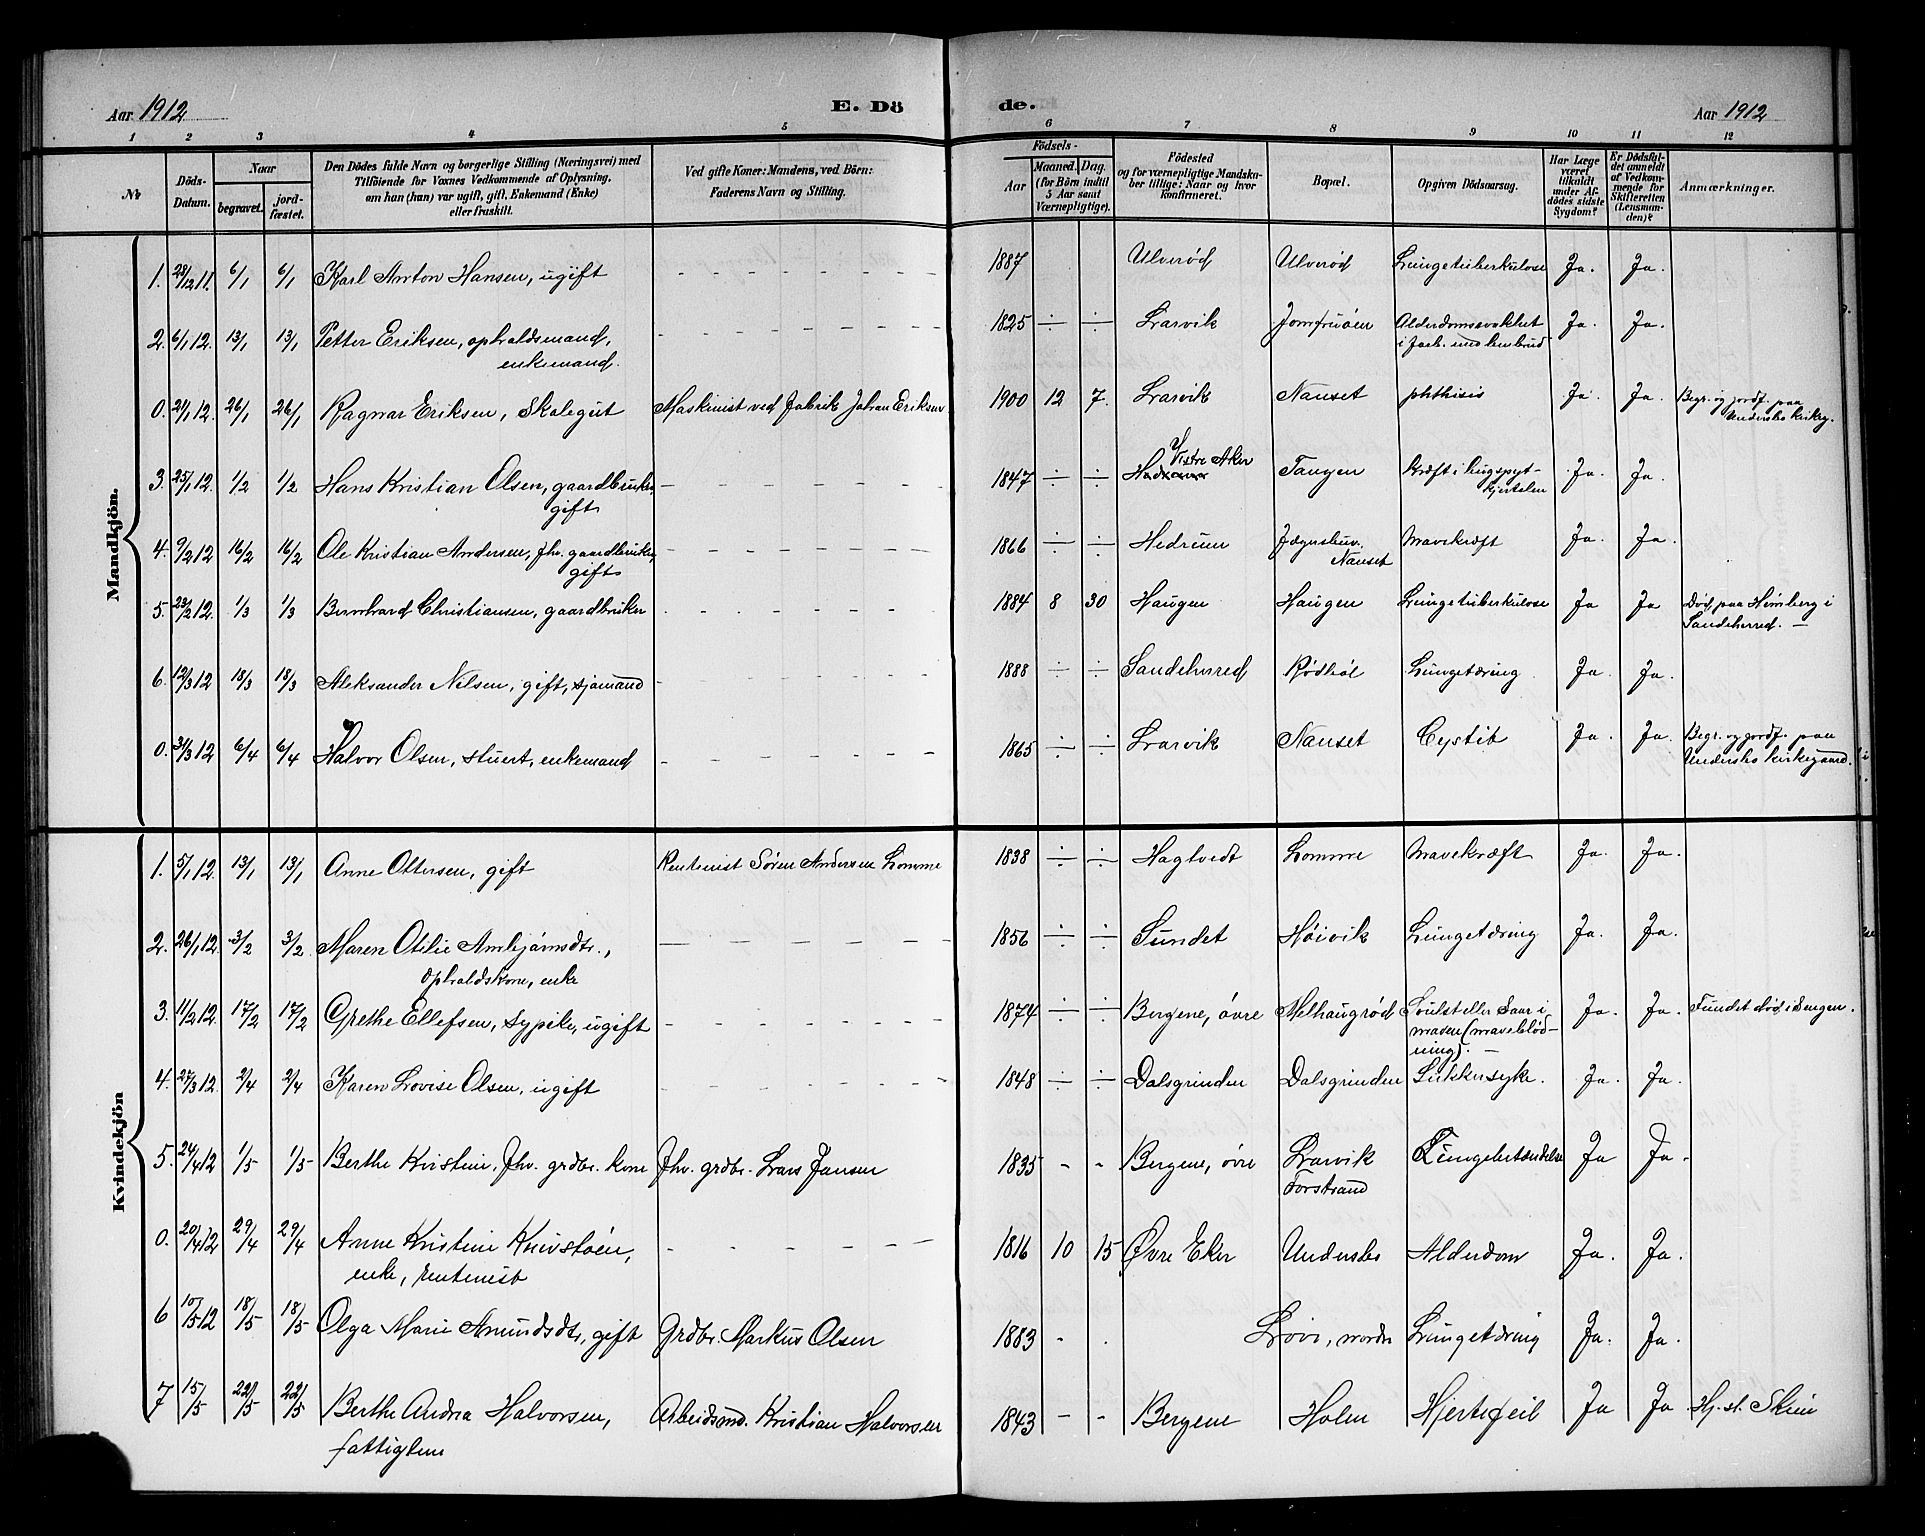 Aar 1912
E. Dö
de.
Aar 1912
1 2 3 4 5 6 7 8 9 10 11 12
№
Döds-
Datum.
Naar
begravet.
jord-
fæstet.
Den Dödes fulde Navn og borgerlige Stilling (Næringsvei) med
Tilföiende for Voxnes Vedkommende af Oplysning,
om han (hun) var ugift, gift, Enkemand (Enke)
eller fraskilt.
Ved gifte Koner: Mandens, ved Börn:
Faderens Navn og Stilling.
Födsels-
Aar
Maaned. Dag.
(for Börn indtil
5 Aar samt
Værnepligtige).
Födested
og for værnepligtige Mandska-
ber tillige: Naar og hvor
konfirmeret.
Bopæl.
Opgiven Dödsaarsag.
Har Læge
været
tilkaldt
under Af-
dödes sidste
Sygdom?
Er Dödsfal-
det anmeldt
af Vedkom-
mende for
Skifteretten
(Lensman-
den)?
Anmærkninger.
Mandkjön.
1. 28/12 11. 6/1 6/1 Karl Anton Hansen, ugift 1887 Ulverød Ulverød Lungetuberkulose Ja. Ja.
2. 6/1 12. 13/1 13/1 Petter Eriksen, opholdsmand, 1825 ÷ ÷ Larvik Jomfruöen Alderdomssvakhet Ja. Ja.
enkemand. i forb. med benbrud
0. 21/1 12. 26/1 26/1 Ragnar Eriksen, Skolegut Maskinist ved Fabrik Johan Eriksen 1900 12 7. Larvik Nanset phthisis Ja. Ja. Begr. og jordf. paa
Undersbo kirkeg.
3. 25/1 12. 1/2 1/2 Hans Kristian Olsen, gaardbruker, 1847 ÷ ÷ Vestre Aker Tangen Kræft i bugspyt- Ja. Ja.
gift kjertelen
4. 9/2 12 16/2 16/2 Ole Kristian Andersen, fhv. gaardbruker, 1866 ÷ ÷ Hedrum Nanset Mavekræft Ja. Ja.
gift
5. 23/2 12. 1/3 1/3 Bernhard Christiansen, gaardbruker 1884 8 30 Haugen Haugen Lungetuberkulose Ja Ja Död paa Himberg i
Sandeherred. —
6. 12/3 12 18/3 18/3 Aleksander Nilsen, gift, sjømand 1888 ÷ ÷ Sandeherred Rödböl Lungetæring Ja. Ja.
0. 31/3 12 6/4 6/4 Halvor Olsen, stuert, enkemand 1865 ÷ ÷ Larvik Nanset Cystit Ja. Ja. Begr. og jordf. paa
Undersbo kirkegaard.
Kvindekjön
1. 5/1 12. 13/1 13/1 Anne Ottersen, gift Rentenist Sören Andersen Lomme 1838 ÷ ÷ Hagtvedt Lomme Mavekræft Ja. Ja.
2. 26/1 12. 3/2 3/2 Maren Otilie Arnbjörnsdtr., 1856 ÷ ÷ Sundet Høivik Lungetæring Ja. Ja.
opholdskone, enke
3. 11/2 12. 17/2 17/2 Grethe Ellefsen, sypike, ugift 1874 ÷ ÷ Bergene, övre Melhaugrød Svulst eller Saar i Ja. Ja. Fundet död i Sengen.
maven (maveblöd-
ning). —
4. 27/3 12. 2/4 2/4 Karen Lovise Olsen, ugift 1848 ÷ ÷ Dalsgrinden Dalsgrinden Sukkersyke. Ja. Ja.
5. 24/4 12 1/5 1/5 Berthe Kristine, fhv. grdbr. kone Fhv. grdbr. Lars Jansen 1835 - - Bergene, övre Larvik Lungebetændelse Ja Ja.
Torstrand
0. 20/4 12 29/4 29/4 Anne Kristine Knivstöen, 1816 10 15 Øvre Eker Undersbo Alderdom Ja. Ja.
enke, rentenist
6 10/5 12 18/5 18/5 Olga Marie Amundsdtr, gift Grdbr. Markus Olsen 1883 - . Løve, nordre Lungetæring Ja. Ja.
7 15/5 22/5 22/5 Berthe Andrea Halvorsen, Arbeidsmd. Kristian Halvorsen 1843 - - Bergene Holm Hjertefeil Ja Ja Hj. st. Skien
fattiglem